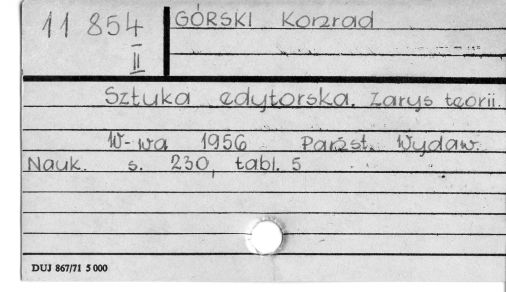 11 854
II
GÓRSKI Konrad
Sztuka edytorska. Zarys teorii.
W-wa 1956 Państ. Wydaw.
Nauk. s. 230, tabl. 5
DUJ 867/71 5 000